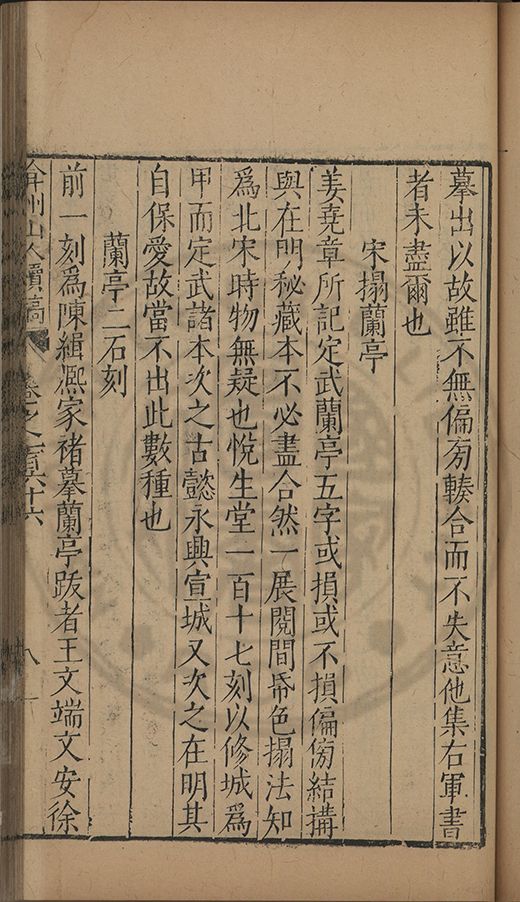 摹出以故雖不無偏旁輳合而不失意他集右軍書
者未盡爾也
宋搨蘭亭
姜堯章所記定武蘭亭五字或損或不損偏傍結搆
與在明秘藏本不必盡合然一展閱間帋色搨法知
爲北宋時物無疑也悅生堂一百十七刻以修城爲
甲而定武諸本次之古懿永興宣城又次之在明其
自保愛故當不出此數種也
蘭亭二石刻
前一刻爲陳緝熈家褚摹蘭亭跋者王文端文安徐
弇州山人續稿 卷之一百六十六 八